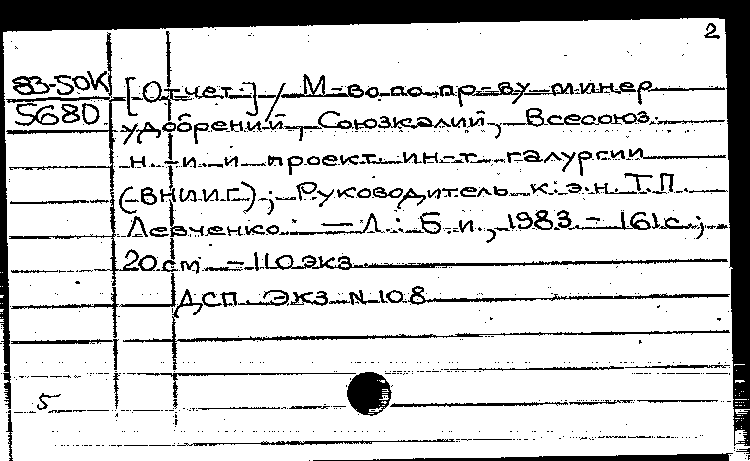 2
83-50К [Отчет.] / М-во по пр-ву минер.
5680 удобрений, Союзкалий, Всесоюз.
н.-и. и проект. ин-т галургии
(ВНИИГ); Руководитель к.э.н. Т.П.
Левченко. — Л.: Б.и., 1983. - 161с.;
20 см. - 110 экз.
ДСП. Экз. N 108
5